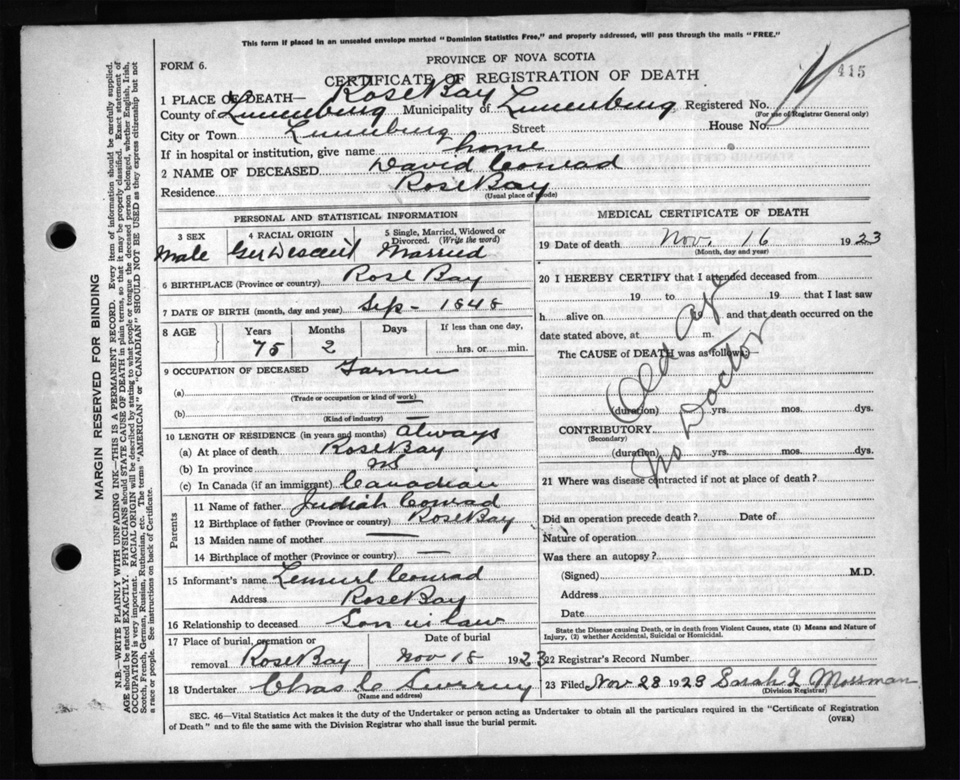 This form if placed in an unsealed envelope marked "Dominion Statistics Free," and properly addressed, will pass through the mails "FREE."
FORM 6.
PROVINCE OF NOVA SCOTIA
CERTIFICATE OF REGISTRATION OF DEATH
415
1 PLACE OF DEATH— Rose Bay
County of Lunenburg Municipality of Lunenburg Registered No.
(For use of Registrar General only)
City or Town Lunenburg Street House No.
If in hospital or institution, give name home
2 NAME OF DECEASED David Conrad
Residence Rose Bay
(Usual place of abode)
PERSONAL AND STATISTICAL INFORMATION
3 SEX Male
4 RACIAL ORIGIN Ger Descent
5 Single, Married, Widowed or Divorced. (Write the word) Married
6 BIRTHPLACE (Province or country) Rose Bay
7 DATE OF BIRTH (month, day and year) Sep - 1848
8 AGE Years Months Days If less than one day,
75 2 hrs. or min.
9 OCCUPATION OF DECEASED Farmer
(a) —
(Trade or occupation or kind of work)
(b) —
(Kind of industry)
10 LENGTH OF RESIDENCE (in years and months) always
(a) At place of death Rose Bay
(b) In province NS
(c) In Canada (if an immigrant) Canadian
Parents
11 Name of father Judiah Conrad
12 Birthplace of father (Province or country) Rose Bay
13 Maiden name of mother —
14 Birthplace of mother (Province or country) —
15 Informant's name Lemuel Conrad
Address Rose Bay
16 Relationship to deceased Son in law
17 Place of burial, cremation or removal Rose Bay
Date of burial Nov 18 1923
18 Undertaker Chas
(Name and address)
MEDICAL CERTIFICATE OF DEATH
19 Date of death Nov. 16 1923
(Month, day and year)
20 I HEREBY CERTIFY that I attended deceased from
19 to 19 that I last saw
h alive on 19 and that death occurred on the
date stated above, at m.
The CAUSE of DEATH was as follows:—
Old Age
No Doctor
(duration) yrs. mos. dys.
CONTRIBUTORY
(Secondary)
(duration) yrs. mos. dys.
21 Where was disease contracted if not at place of death?
Did an operation precede death? Date of
Nature of operation
Was there an autopsy?
(Signed) M.D.
Address
Date
State the Disease causing Death, or in death from Violent Causes, state (1) Means and Nature of
Injury, (2) whether Accidental, Suicidal or Homicidal.
22 Registrar's Record Number
23 Filed Nov 28 1923 Sarah L Mossman
(Division Registrar)
SEC. 46—Vital Statistics Act makes it the duty of the Undertaker or person acting as Undertaker to obtain all the particulars required in the "Certificate of Registration
of Death" and to file the same with the Division Registrar who shall issue the burial permit.
(OVER)
MARGIN RESERVED FOR BINDING
N.B.—WRITE PLAINLY WITH UNFADING INK—THIS IS A PERMANENT RECORD. Every item of information should be carefully supplied.
AGE should be stated EXACTLY. PHYSICIANS should STATE CAUSE OF DEATH in plain terms, so that it may be properly classified. Exact statement of
OCCUPATION is very important. RACIAL ORIGIN will be described by stating to what people or tongue the deceased person belonged, whether English, Irish,
Scotch, French, German, Russian, Ruthenian, etc. The terms "AMERICAN" or "CANADIAN" SHOULD NOT BE USED as they express citizenship but not
a race or people. See instructions on back of Certificate.